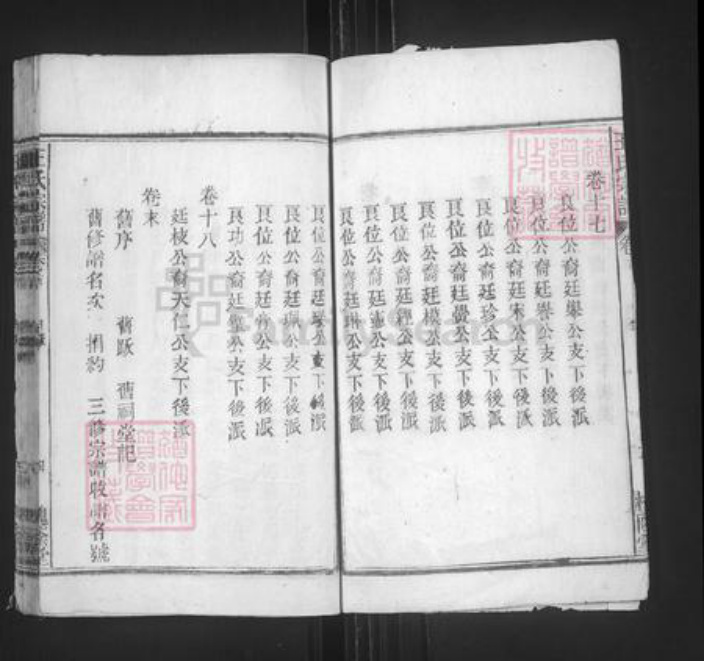 卷十七
良位公裔廷舉公支下後派
良位公裔廷譽公支下後派
良位公裔廷宋公支下後派
良位公裔廷珍公支下後派
良位公裔廷疊公支下後派
良位公裔廷模公支下後派
良位公裔廷經公支下後派
良位公裔廷憲公支下後派
良位公裔廷琳公支下後派
良位公裔廷公支下後派
良位公裔廷公支下後派
良位公裔廷公支下後派
良功公裔廷公支下後派
卷十八
廷枝公裔天仁公支下後派
卷末
舊序 舊跋 舊祠堂記
舊修譜名次 捐約 三修宗譜收譜名號
王氏宗譜
FamilySearch